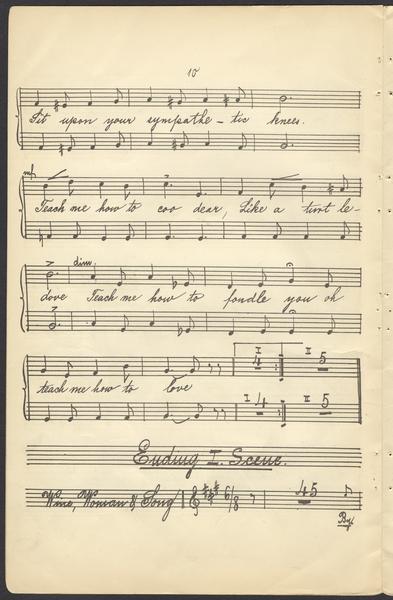 10
Sit upon your sympathe - tic knees.
mf
Teach me how to coo dear, Like a
dim.
dove Teach me how to fondle you oh
I 4 II 5
teach me how to love
I 4 II 5
Ending I. Scene.
Wine, Woman & Song 6/8 45